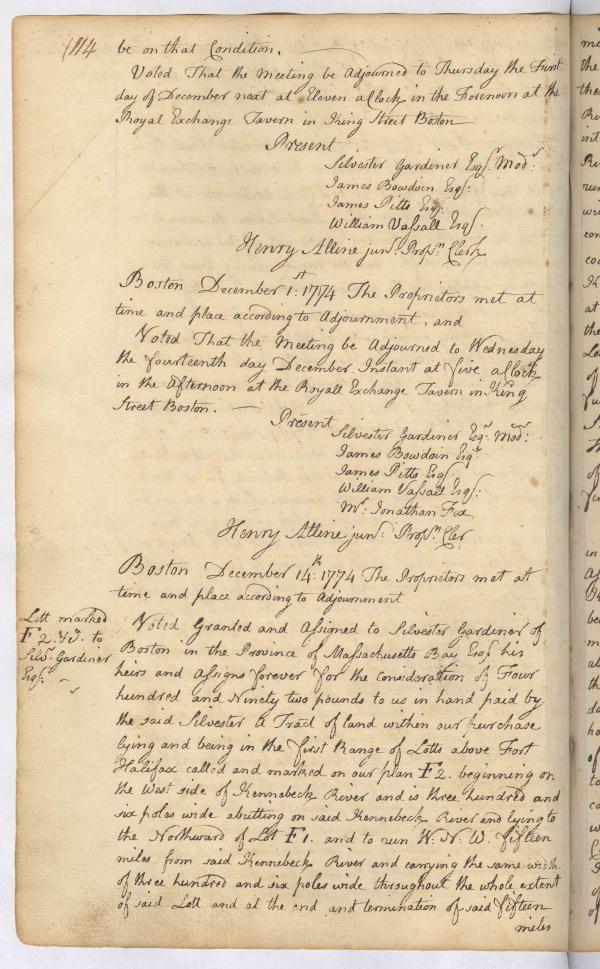 (114
be on that Condition.
Voted That the Meeting be Adjourned to Thursday the First
day of December next at Eleven aClock in the Forenoon at the
Royal Exchange Tavern in King Street Boston
Present
Silvester Gardiner Esqr. Modr.
James Bowdoin Esqr:
James Pitts Esqr.
William Vassall Esqr.
Henry Alline junr. Proprs. Clerk
Boston December 1st. 1774 The Proprietors met at
time and place according to Adjournment, and
Voted That the Meeting be Adjourned to Wednesday
the fourteenth day December Instant at five aClock
in the Afternoon at the Royall Exchange Tavern in King
Street Boston.
Present
Silvester Gardiner Esqr. Modr:
James Bowdoin Esqr
James Pitts Esqr.
William Vassall Esqr:
Mr. Jonathan Fox
Henry Alline junr: Proprs Cler
Boston December 14th: 1774 The Proprietors met at
time and place according to Adjournment
Lott marked
F 2. &c. to
Silvr. Gardiner
Esqr:
Voted Granted and Assigned to Silvester Gardiner of
Boston in the Province of Massachusetts Bay Esqr his
heirs and Assigns forever for the Consideration of Four
hundred and Ninety two pounds to us in hand paid by
the said Silvester A Tract of land within our purchase
lying and being in the first Range of Lotts above Fort
Halifax called and marked on our plan F 2. beginning on
the West side of Kennebeck River and is three hundred and
six poles wide abutting on said Kennebeck River and lying to
the Northward of Lot F 1. and to run W. N. W. fifteen
miles from said Kennebeck River and carrying the same width
of three hundred and six poles wide throughout the whole extent
of said Lott and at the end and termination of said fifteen
miles